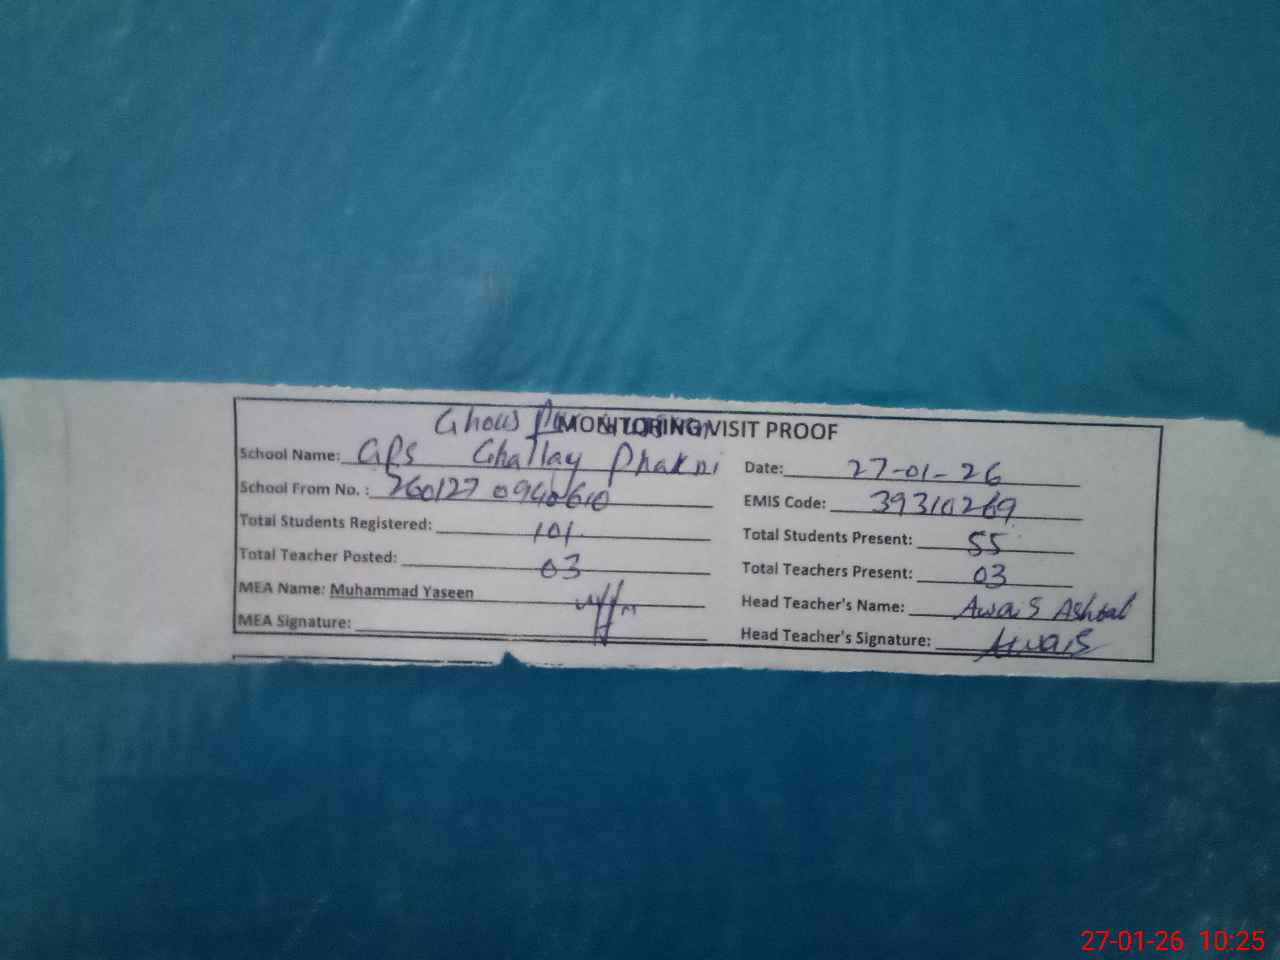 Ghous
MONITORING VISIT PROOF
School Name: GPS Ghallay Phakni
Date: 27-01-26
School From No. : 260127 0940610
EMIS Code: 39310269
Total Students Registered: 101
Total Students Present: 55
Total Teacher Posted: 03
Total Teachers Present: 03
MEA Name: Muhammad Yaseen
Head Teacher's Name: Awais Ashraf
MEA Signature:
Head Teacher's Signature: Awais
27-01-26 10:25